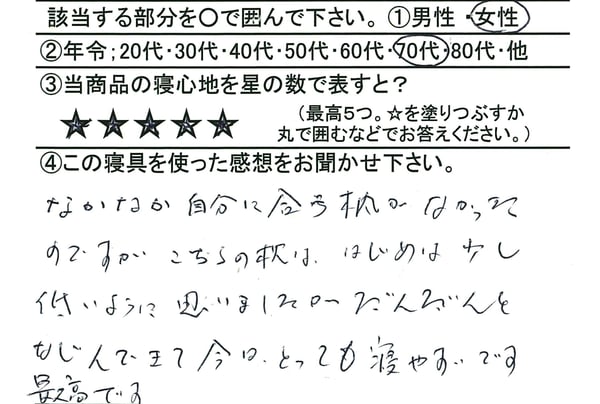 該当する部分を〇で囲んで下さい。①男性・女性
②年令；20代・30代・40代・50代・60代・70代・80代・他
③当商品の寝心地を星の数で表すと？
★★★★★
（最高5つ。☆を塗りつぶすか
丸で囲むなどでお答えください。）
④この寝具を使った感想をお聞かせ下さい。
なかなか自分に合う枕がなかった
のですが こちらの枕は、はじめは少し
低いように思いましたが だんだんと
なじんできて今は、とっても寝やすいです
最高です